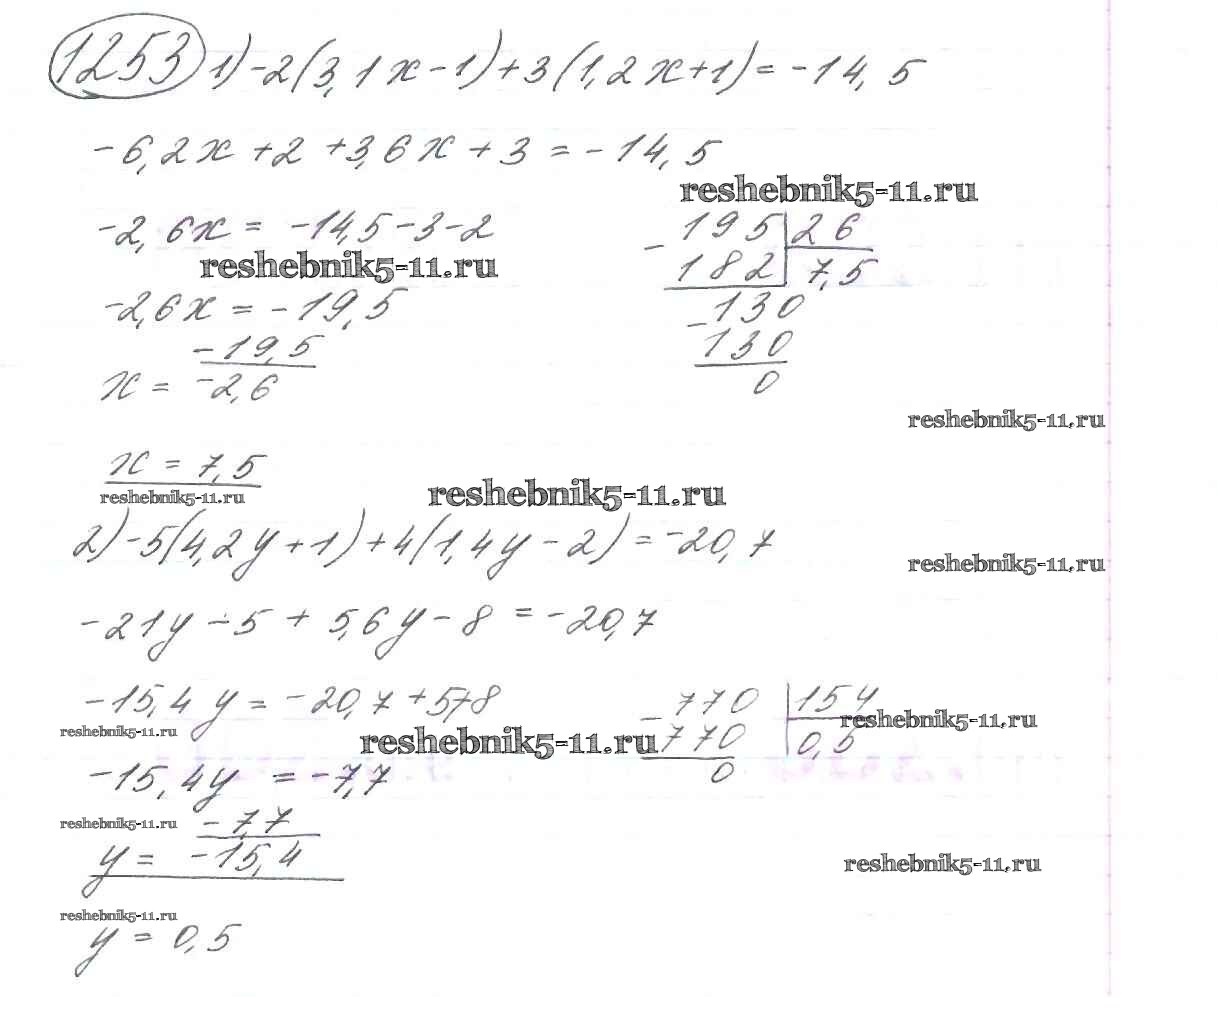 1253 1) -2(3,1x-1)+3(1,2x+1)=-14,5
-6,2x+2+3,6x+3=-14,5
reshebnik5-11.ru
-2,6x=-14,5-3-2
reshebnik5-11.ru
-2,6x=-19,5
x= -19,5/-2,6
195 | 26
- 182 | 7,5
130
- 130
0
reshebnik5-11.ru
x=7,5
reshebnik5-11.ru
reshebnik5-11.ru
2) -5(4,2y+1)+4(1,4y-2)=-20,7
reshebnik5-11.ru
-21y-5+5,6y-8=-20,7
-15,4y=-20,7+5+8
reshebnik5-11.ru
770 | 154
- 770 | 0,5
0
reshebnik5-11.ru
reshebnik5-11.ru
-15,4y=-7,7
reshebnik5-11.ru
y= -7,7/-15,4
reshebnik5-11.ru
reshebnik5-11.ru
y=0,5